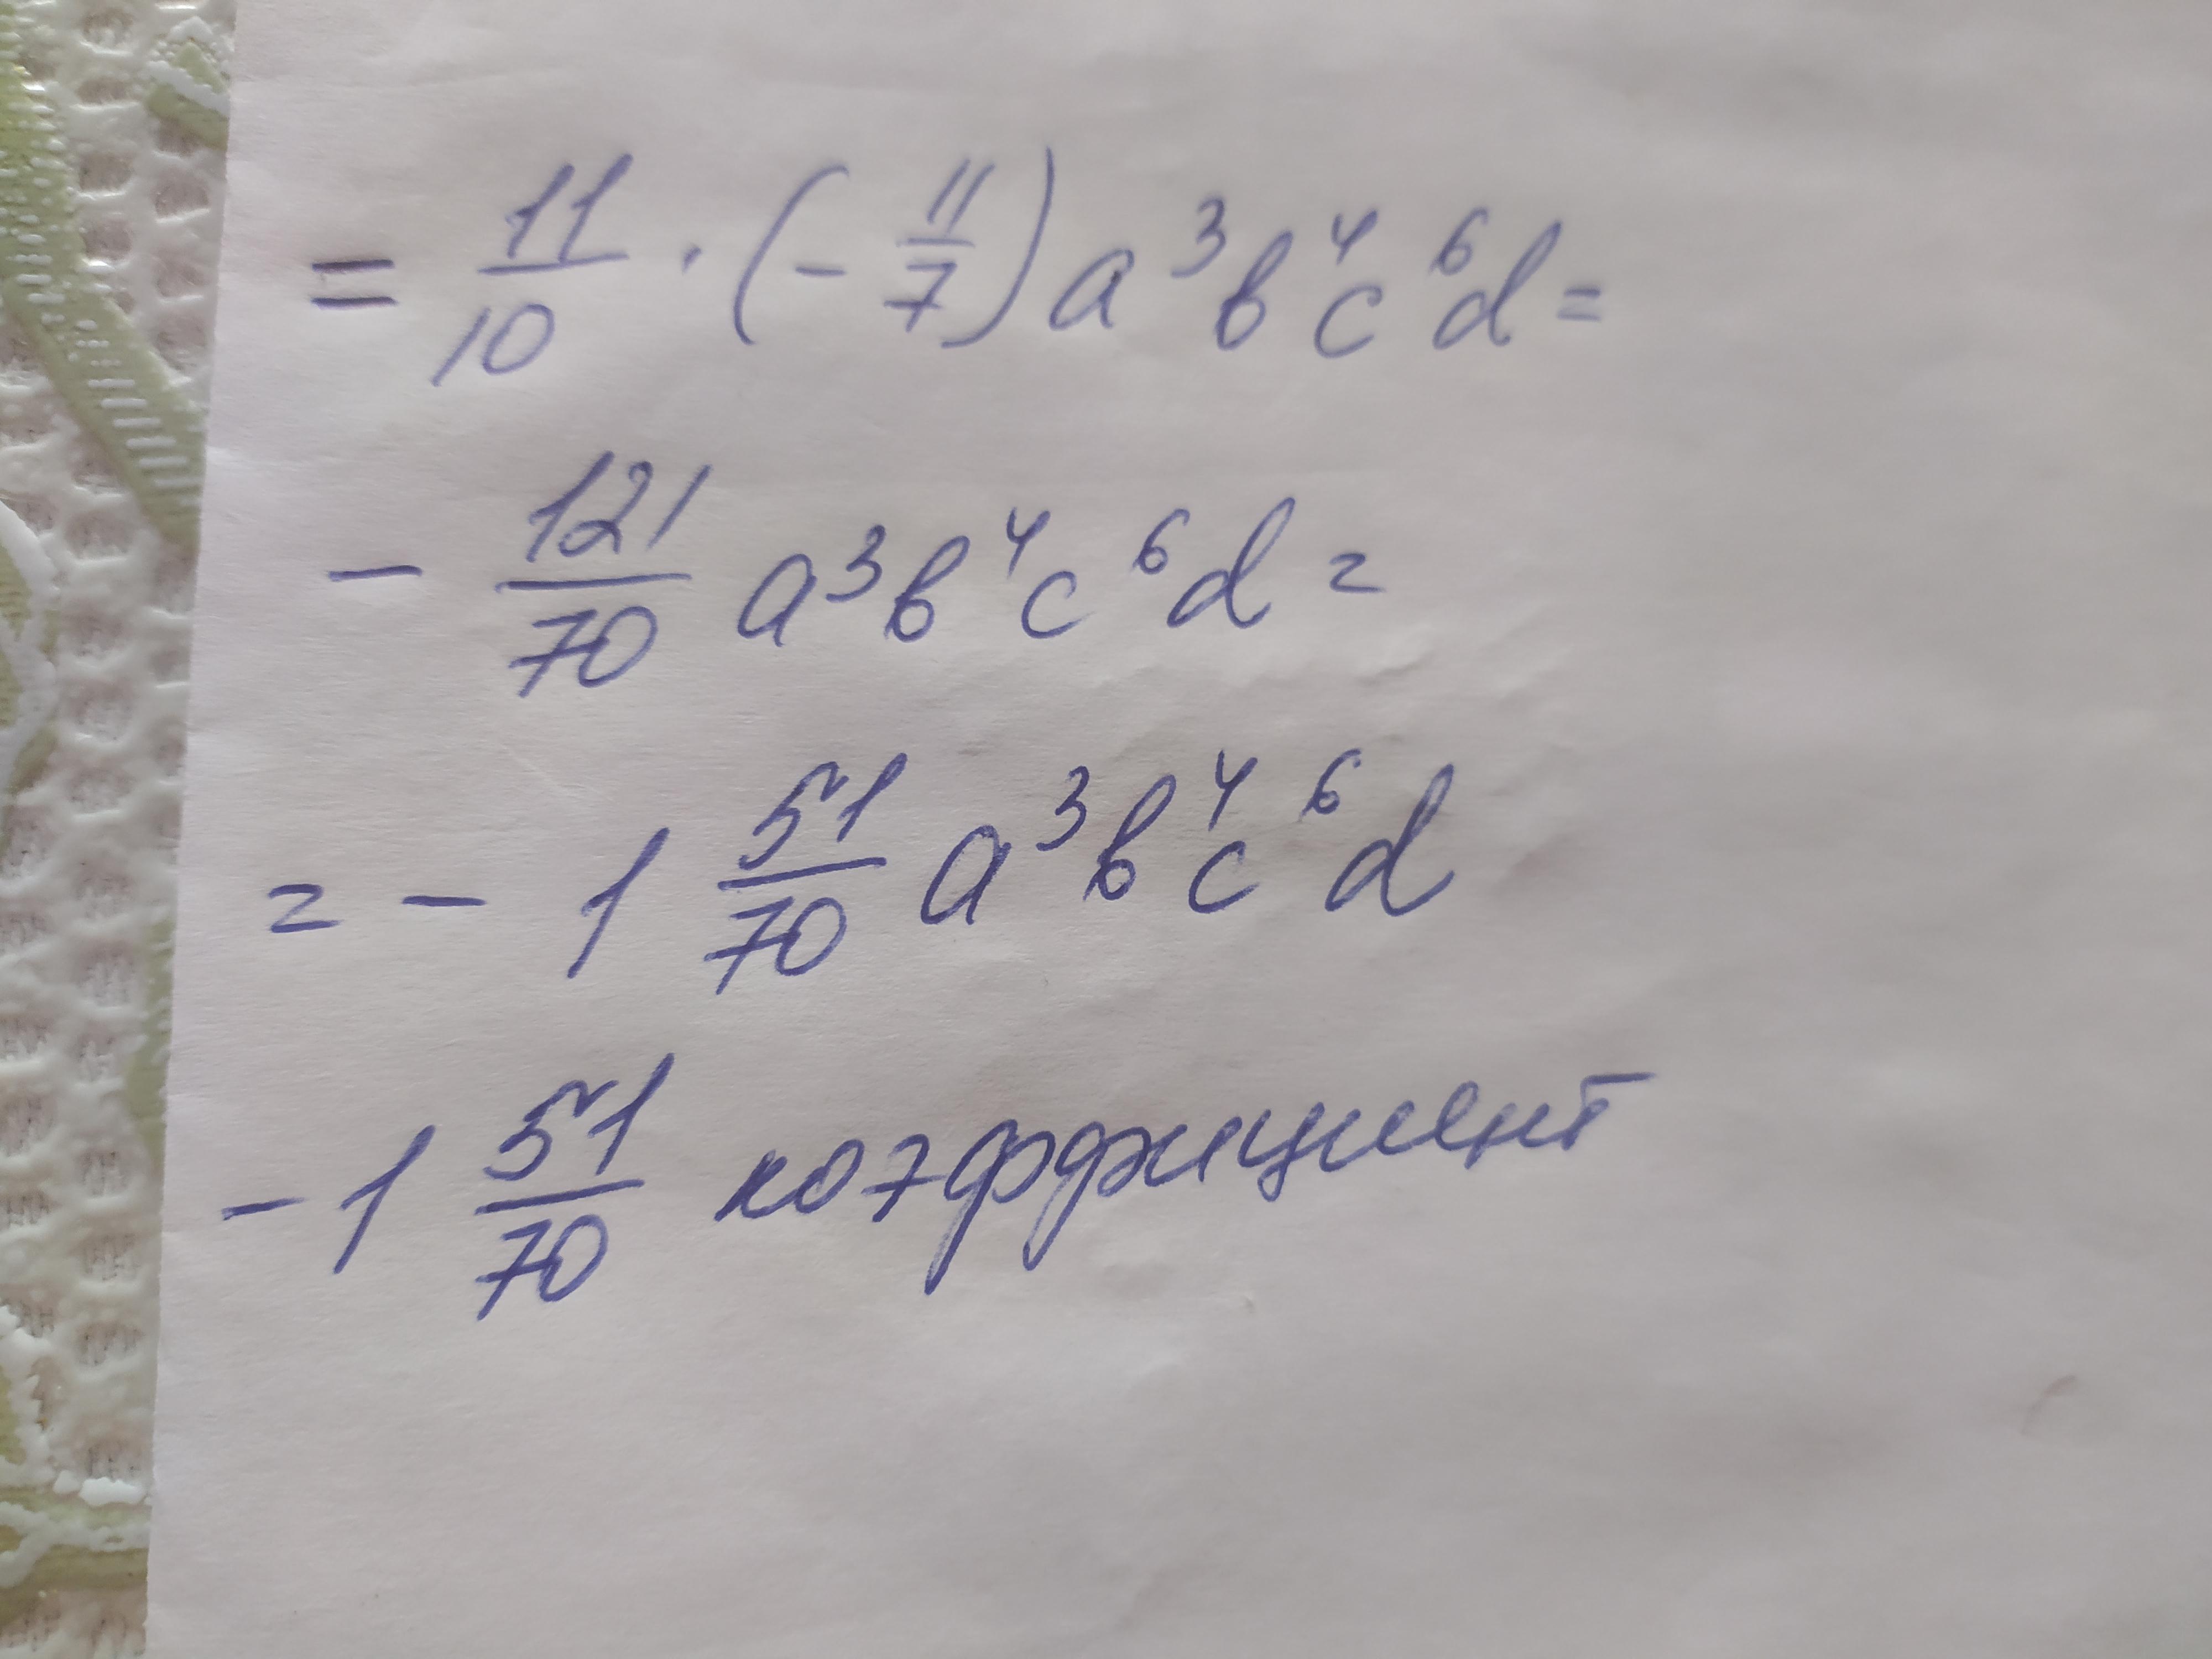 = 11/10 · (- 11/7) a³b⁴c⁶d =
- 121/70 a³b⁴c⁶d =
= - 1 51/70 a³b⁴c⁶d
- 1 51/70 коэффициент